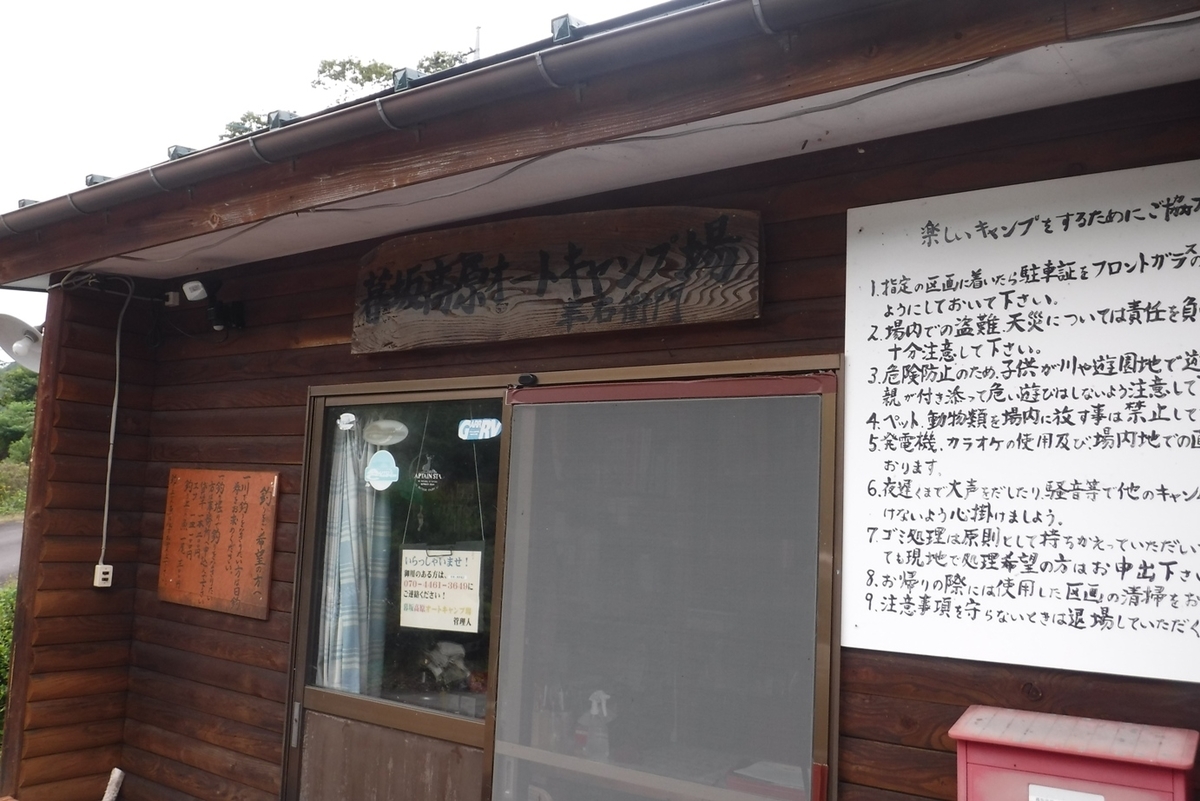 蕃坂高原オートキャンプ場
幸右衛門
楽しいキャンプをするためにご協力
1.指定の区画に着いたら駐車証をフロントガラスの
ようにしておいて下さい。
2.場内での盗難、天災については責任を負
十分注意して下さい。
3.危険防止のため、子供が川や遊園地で遊
親が付き添って危い遊びはしないよう注意して
4.ペット、動物類を場内に放す事は禁止して
5.発電機、カラオケの使用及び、場内地での
おります。
6.夜遅くまで大声をだしたり、騒音等で他のキャン
けないよう心掛けましょう。
7.ゴミ処理は原則として持ちかえっていただい
ても現地で処理希望の方はお申出下さい
8.お帰りの際には使用した区画の清掃をお
9.注意事項を守らないときは退場していただく
釣りをご希望の方へ
いらっしゃいませ!
御用のある方は、
070-4461-3649に
ご連絡ください!
管理人